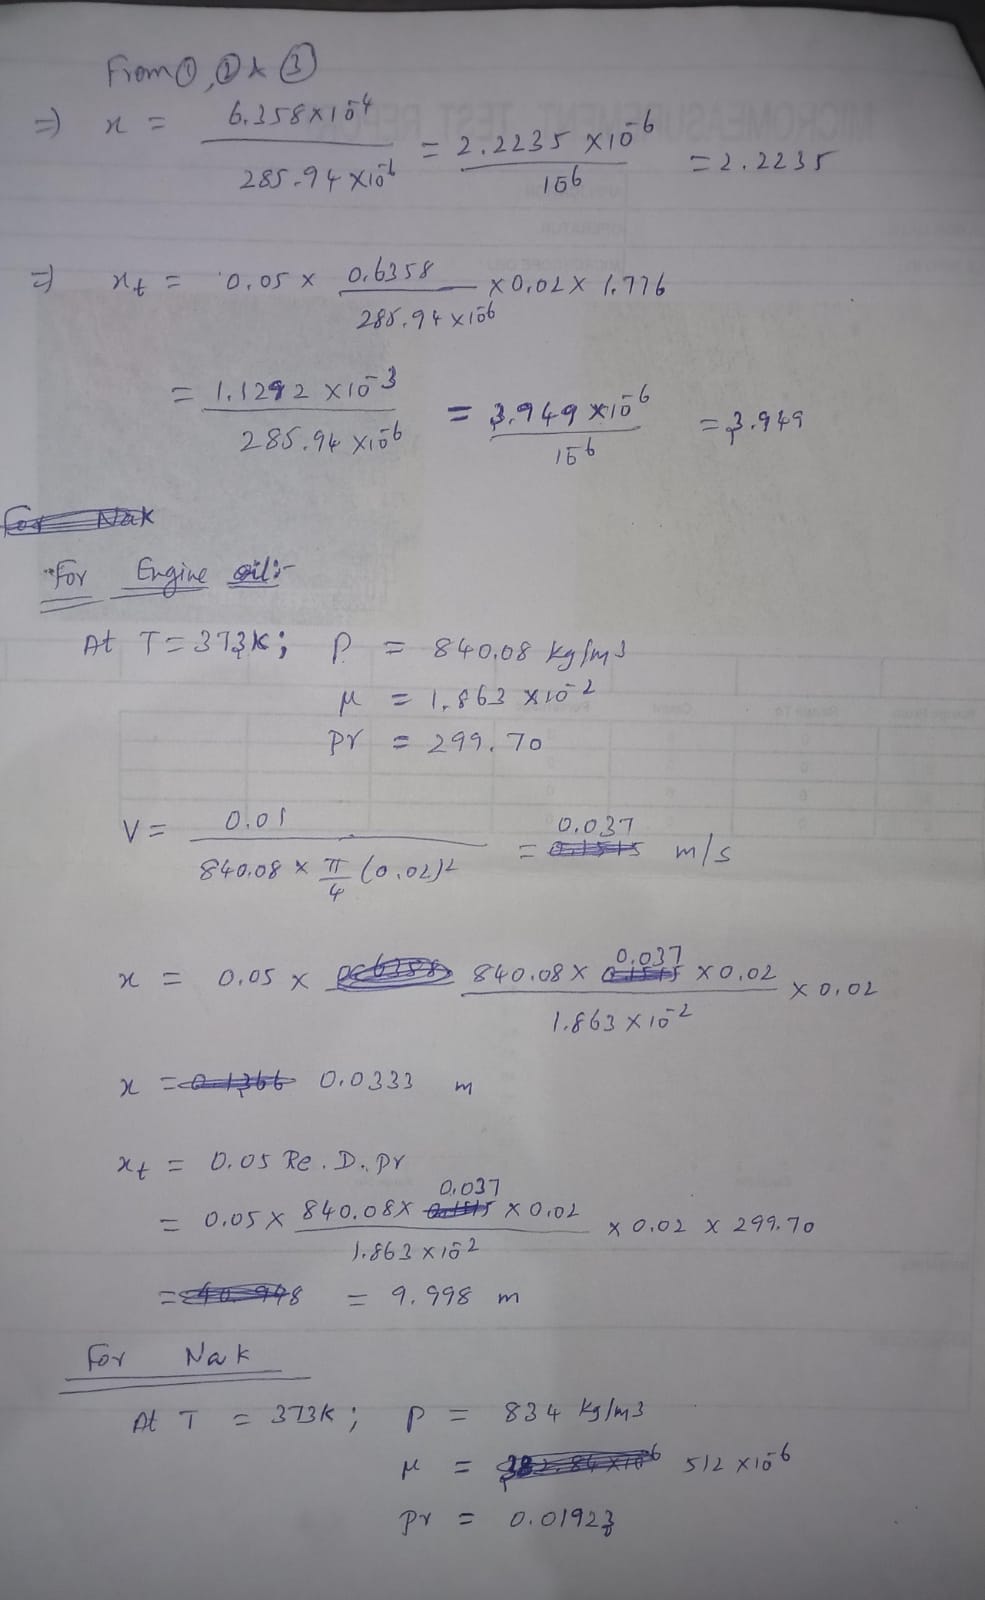 From ①, ② & ③
⇒ x = 6.358×10⁻⁴ / 285.94×10⁻⁶ = 2.2235 ×10⁻⁶ / 10⁻⁶ = 2.2235
⇒ xt = 0.05 × 0.6358 / 285.94×10⁻⁶ ×0.02× 1.776
= 1.1292 ×10⁻³ / 285.94 ×10⁻⁶ = 3.949 ×10⁻⁶ / 10⁻⁶ = 3.949
For Nak
For Engine oil:-
At T = 373K; ρ = 840.08 kg/m3
μ = 1.863 ×10⁻²
Pr = 299.70
V = 0.01 / 840.08 × π/4 (0.02)² = 0.037 m/s
x = 0.05 × 840.08 × 0.037 ×0.02 / 1.863 ×10⁻² × 0.02
x = 0.0333 m
xt = 0.05 Re. D. Pr
= 0.05 × 840.08× 0.037 × 0.02 / 1.863 ×10⁻² × 0.02 × 299.70
= 9.998 m
For Nak
At T = 373K; ρ = 834 kg/m3
μ = 512 ×10⁻⁶
Pr = 0.01923